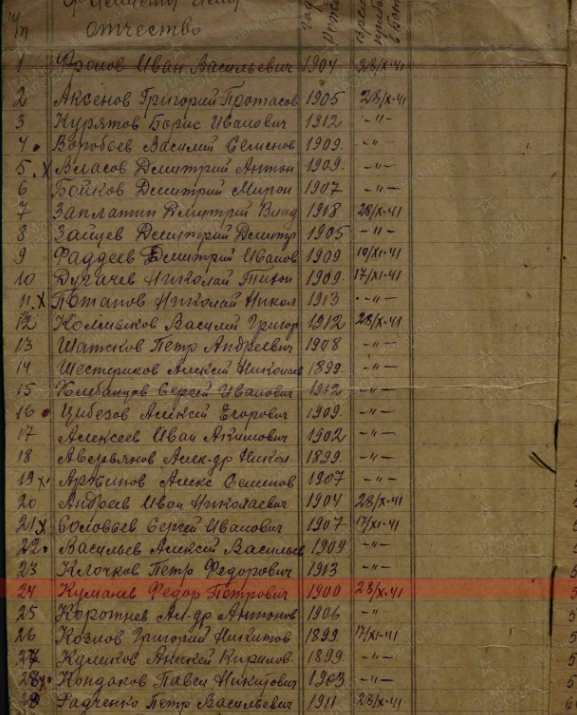 №
отчество
1 Фролов Иван Васильевич 1904 28/X-41
2 Аксенов Григорий Протасов 1905 28/X-41
3 Курятов Борис Иванович 1912 -"-
4. Воробьев Василий Семенов 1909. -"-
5. х Власов Дмитрий Антон 1909. -"-
6 Бойков Дмитрий Мирон 1907 -"-
7 Заплатин Дмитрий Влад 1918 28/X-41
8 Зайцев Дмитрий Дмитр 1905 -"-
9 Фаддеев Дмитрий Иванов 1909 10/XI-41
10 Дугичев Николай Тихон 1909 17/XI-41
11. х Потапов Николай Никол 1913 -"-
12 Колмыков Василий Григор 1912 28/X-41
13 Шатсков Петр Андреевич 1908 -"-
14 Шестериков Алексей Николаев 1899. -"-
15 Хлебанцов Сергей Иванович 1912 -"-
16. Цибезов Алексей Егорович 1909. -"-
17 Алексеев Иван Акимович 1902 -"-
18 Аверьянов Алек-др Никол 1899 -"-
19 х. Алекс Семенов 1907 -"-
20 Андреев Иван Николаевич 1904 28/X-41
21 х Соловьев Сергей Иванович 1907 17/XI-41
22. Васильев Алексей Васильев 1909 -"-
23 Клочков Петр Федорович 1913 -"-
24 Куманев Федор Петрович 1900 28/X-41
25 Коротнев Ал-др Антонов 1906 -"-
26 Козлов Григорий Никитов 1899 17/XI-41
27 Куликов Алексей Кирилов. 1899 -"-
28 х. Кондаков Павел Никитович 1903 -"-
29 Радченко Петр Васильевич 1911 28/X-41